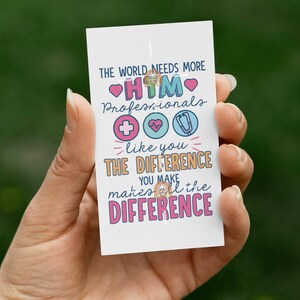 THE WORLD NEEDS MORE
HTM
Professionals
like you
THE DIFFERENCE
YOU MAKE
makes all the
DIFFERENCE